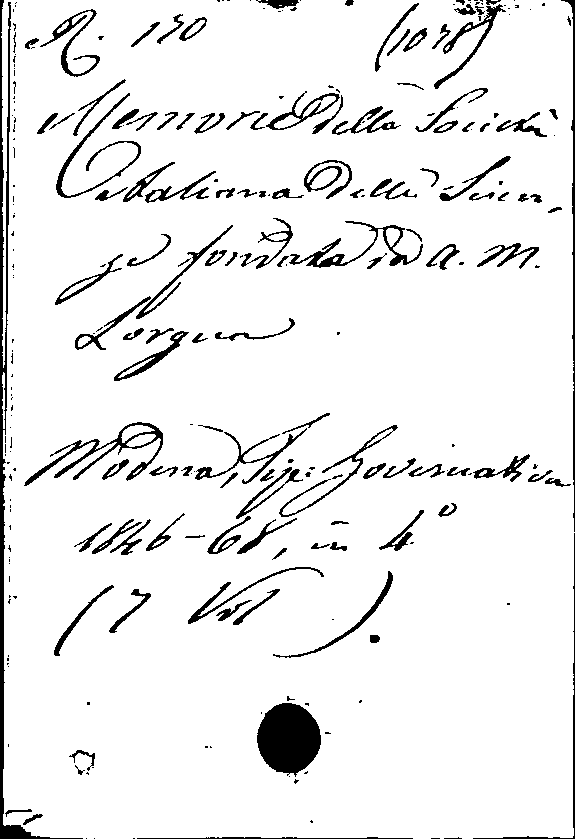 R. 170 (1078)
Memorie della Società
italiana delle Scien-
ze fondata da A. M.
Lorgna
Modena, Tip: Governativa
1846-68, in 4º
(7 Vol).